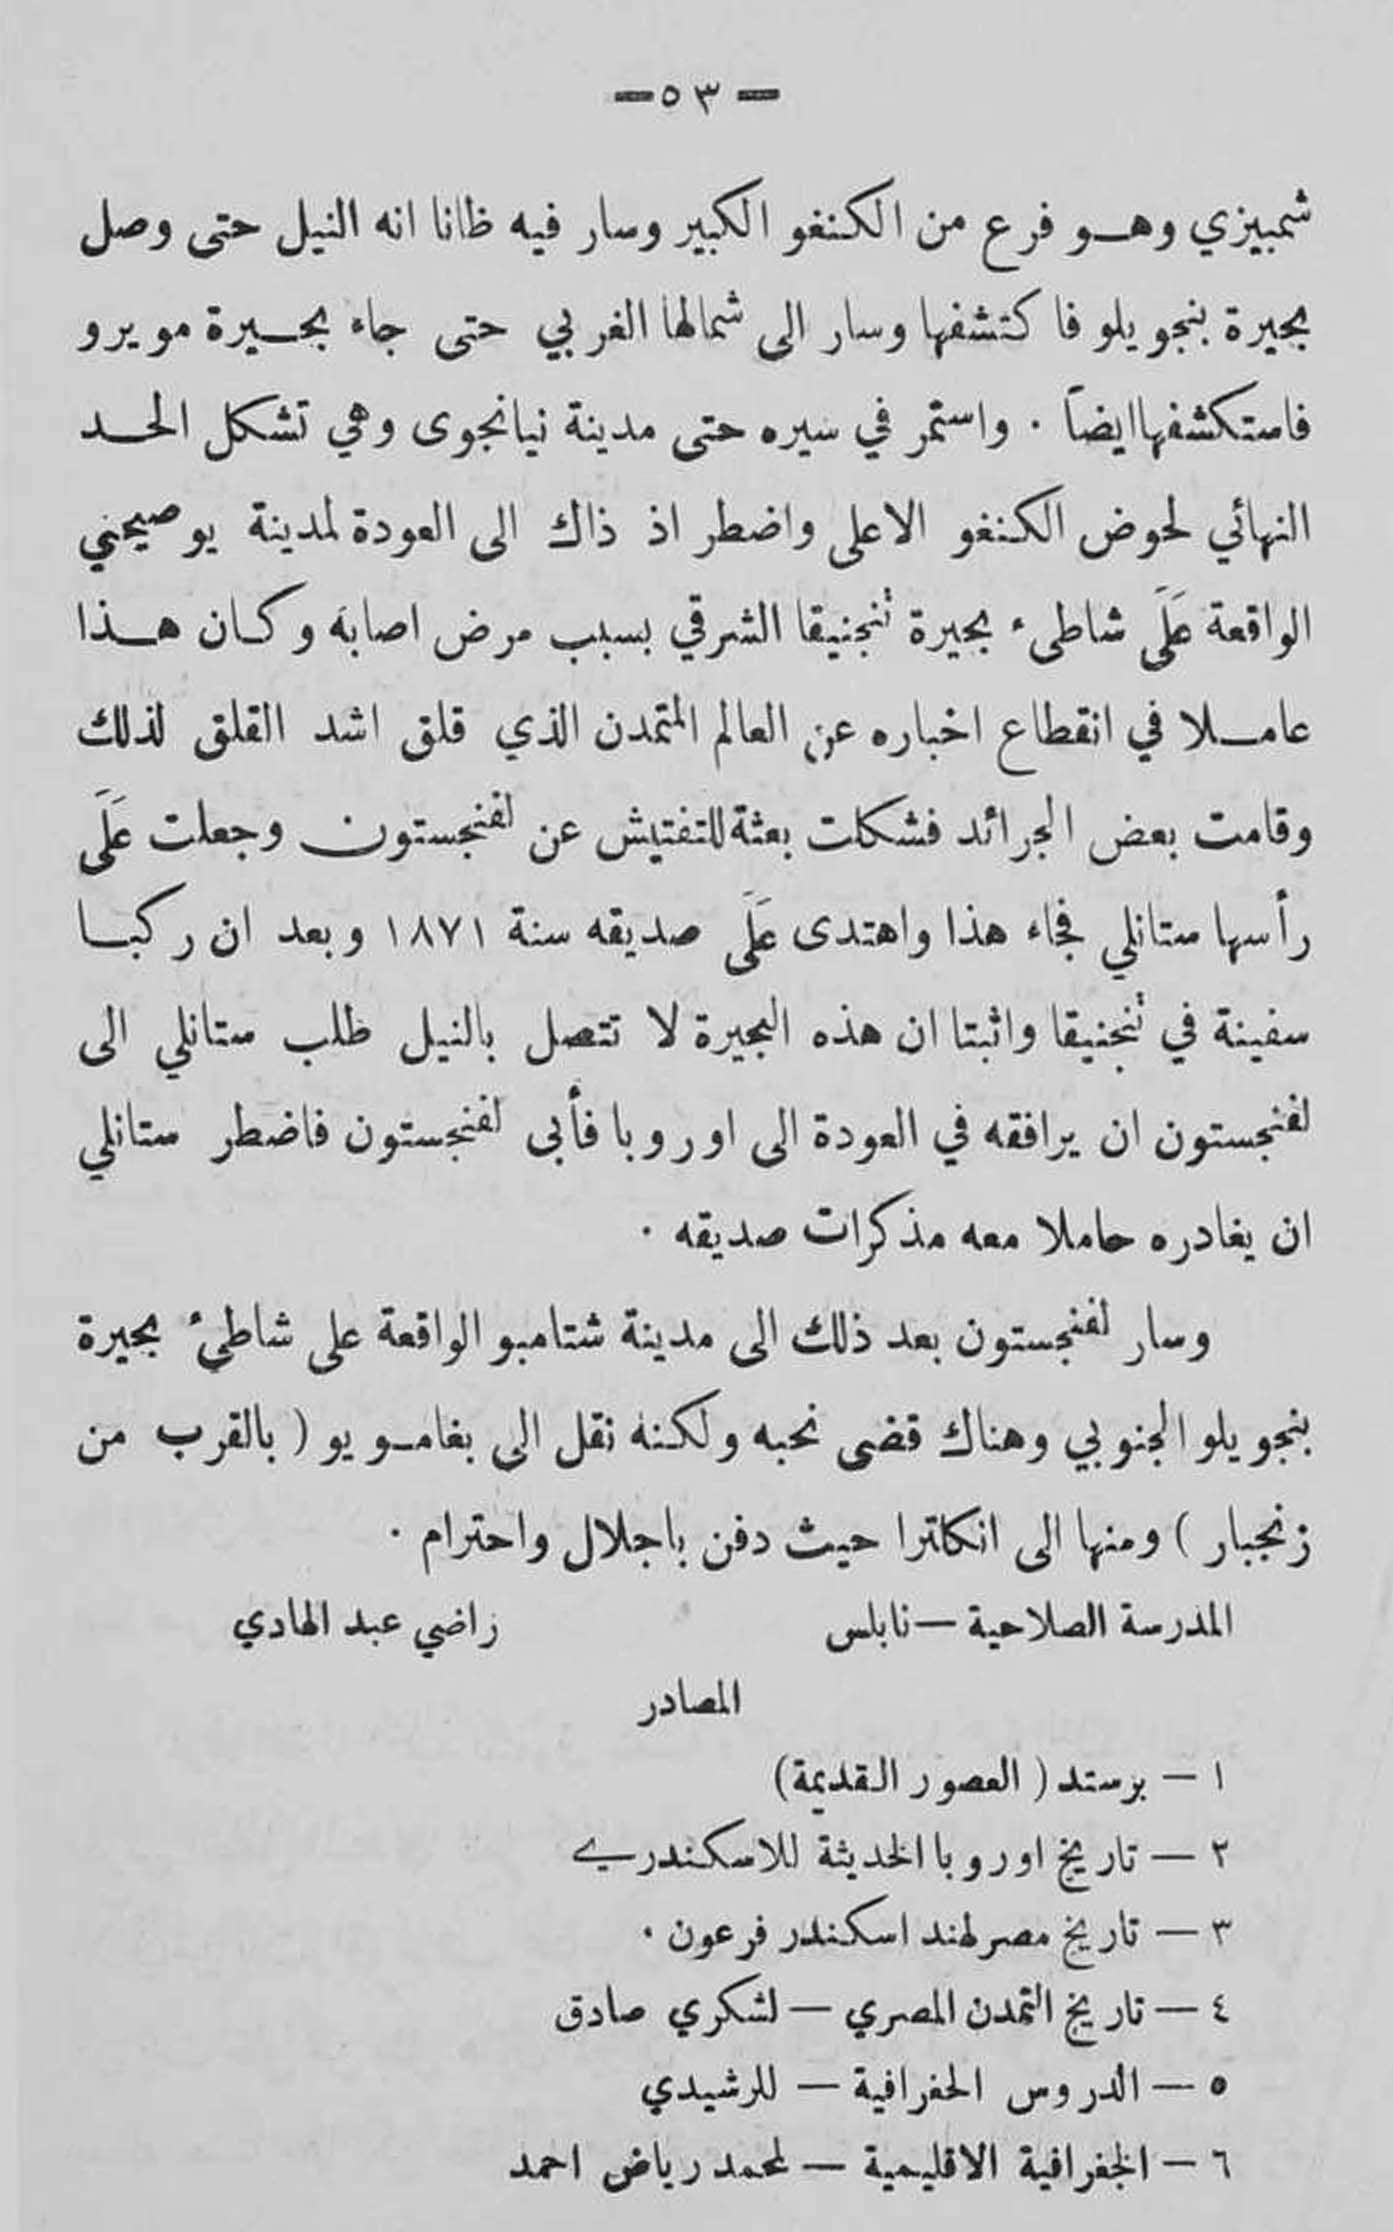 — ٥٣ —
شمبيزي وهو فرع من الكنغو الكبير وسار فيه ظانا انه النيل حتى وصل
بحيرة بنجويلو فاكتشفها وسار الى شمالها الغربي حتى جاء بحيرة مويرو
فاستكشفها ايضاً . واستمر في سيره حتى مدينة نيانجوى وهي تشكل الحد
النهائي لحوض الكنغو الاعلى واضطر اذ ذاك الى العودة لمدينة يوصيجيني
الواقعة عَلَى شاطىء بحيرة تنجنيقا الشرقي بسبب مرض اصابه وكان هذا
عاملا في انقطاع اخباره عن العالم المتمدن الذي قلق اشد القلق لذلك
وقامت بعض الجرائد فشكلت بعثة للتفتيش عن لفنجستون وجعلت عَلَى
رأسها ستانلي فجاء هذا واهتدى عَلَى صديقه سنة ١٨٧١ وبعد ان ركبا
سفينة في تنجنيقا واثبتا ان هذه البحيرة لا تتصل بالنيل طلب ستانلي الى
لفنجستون ان يرافقه في العودة الى اوروبا فأبى لفنجستون فاضطر ستانلي
ان يغادره حاملا معه مذكرات صديقه .
وسار لفنجستون بعد ذلك الى مدينة شتامبو الواقعة على شاطئ بحيرة
بنجويلو الجنوبي وهناك قضى نحبه ولكنه نقل الى بغامويو ( بالقرب من
زنجبار ) ومنها الى انكلترا حيث دفن باجلال واحترام .
المدرسة الصلاحية — نابلس راضي عبد الهادي
المصادر
١ — برستد ( العصور القديمة )
٢ — تاريخ اوروبا الحديثة للاسكندري
٣ — تاريخ مصر لهند اسكندر فرعون .
٤ — تاريخ التمدن المصري — لشكري صادق
٥ — الدروس الجغرافية — للرشيدي
٦ — الجغرافية الاقليمية — لمحمد رياض احمد